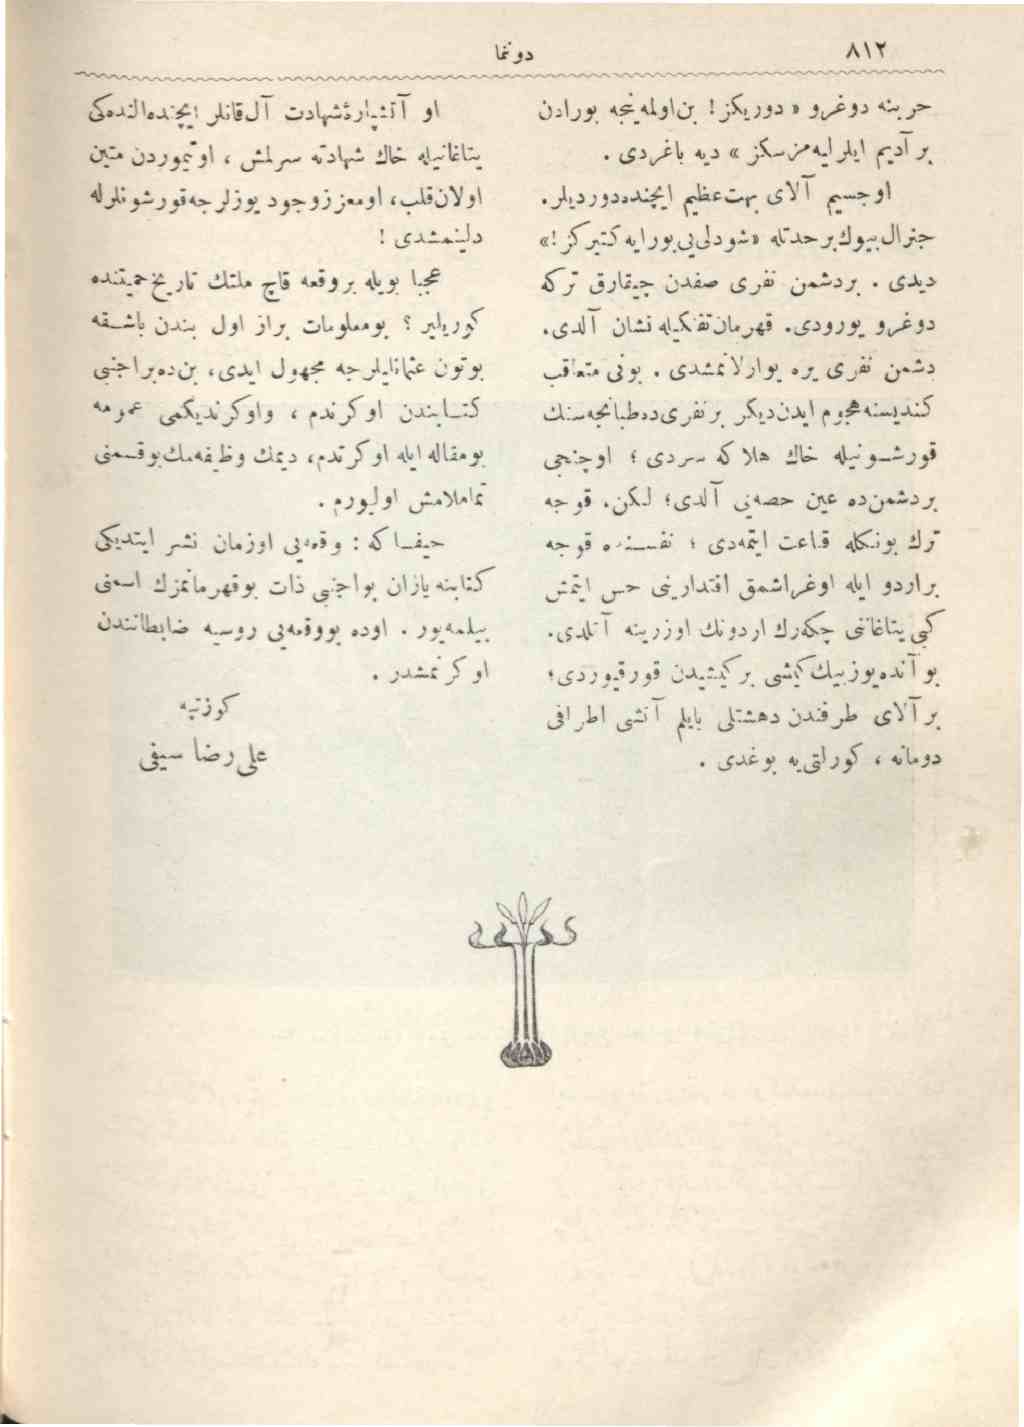 ٨١٢
دوننما
حربنه دوغرو « دوریكز ! بن اولمه‌ینجه بورادن
بر آدیم ایلرلیه‌مزسكز » دیه باغردی .
اوجسیم آلای بهت‌عظیم ایچنده‌دوردیلر.
جنرال بیوك‌بر حدتله «شودلی‌یی‌بورایه كتیركز !»
دیدی . بردشمن نفری صفدن چیقارق تركه
دوغرو یورودی. قهرمان‌تفنكیله نشان آلدی.
دشمن نفری یره یوارلانمشدی . بونی متعاقب
كندیسنه‌هجوم ایدن‌دیكر برنفری‌ده‌طبانجه‌سنك
قورشونیله خاك هلاكه سردی ؛ اوچنجی
بردشمن‌ده عین حصه‌یی آلدی؛ لكن. قوجه
ترك بونكله قناعت ایتمه‌دی ؛ نفسنده قوجه
براردو ایله اوغراشمق اقتدارینی حس ایتمش
كبی یتاغاننی چكه‌رك اردونك اوزرینه آتلدی.
بو آنده‌یوزبیك‌كیشی بركیشیدن قورقیوردی؛
بر آلای طرفندن دهشتلی بایلم آتشی اطرافی
دومانه ، كورلتی‌یه بوغدی .
او آتشپارهٔ‌شهادت آل‌قانلر ایچنده‌النده‌كی
یتاغانیله خاك شهادته سرلمش ، اوتیموردن متین
اولان‌قلب، اومعززوجود یوزلرجه‌قورشونلرله
دلینمشدی !
عجبا بویله بروقعه قاچ ملتك تاریخ‌حمیتنده
كوریلیر ؟ بومعلومات براز اول بندن باشقه
بوتون عثمانلیلرجه مجهول ایدی، بن‌ده‌براجنبی
كتابندن اوكرندم ، واوكرندیكمی عمومه
بومقاله ایله اوكرتدم، دیمك وظیفه‌مك‌بوقسمنی
تماملامش اولیورم .
حیفا كه : وقعه‌یی اوزمان نشر ایتدیكی
كتابنه یازان بواجنبی ذات بوقهرمانمزك اسمنی
بیلمه‌یور . اوده بووقعه‌یی روسیه ضابطانندن
اوكرنمشدر .
كوزتپه
علی رضا سیفی